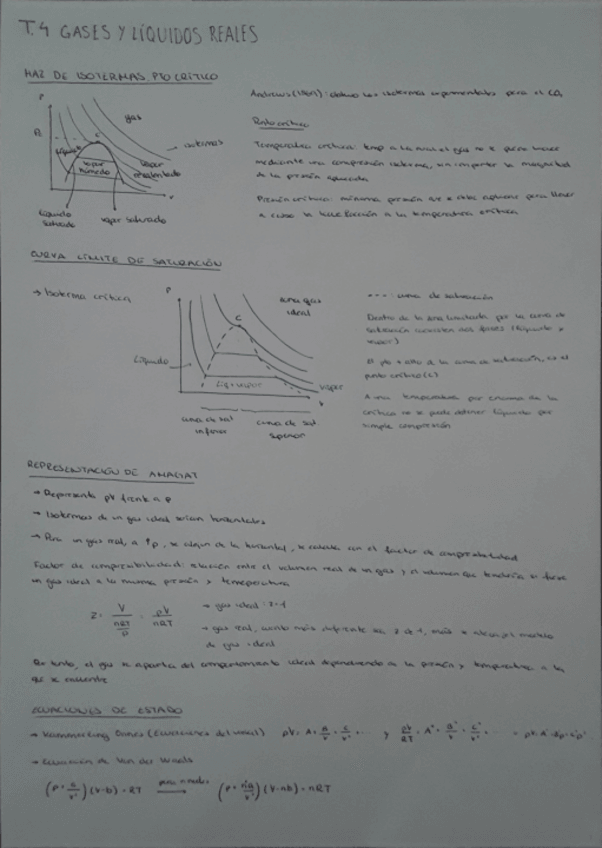 T.4 GASES Y LÍQUIDOS REALES
HAZ DE ISOTERMAS, PTO CRÍTICO
P
gas
isotermas
Pc
C
líquido
vapor húmedo
vapor recalentado
v
líquido saturado
vapor saturado
Andrews (1869): obtuvo las isotermas experimentales para el CO₂
Punto crítico
Temperatura crítica: temp a la cual el gas no se puede licuar
mediante una compresión isoterma, sin importar la magnitud
de la presión aplicada
Presión crítica: mínima presión que se debe aplicar para llevar
a cabo la licuefacción a la temperatura crítica
CURVA LÍMITE DE SATURACIÓN
→ Isoterma crítica
P
zona gas ideal
C
Líquido
Liq+vapor
vapor
v
curva de sat inferior
curva de sat. superior
---: curva de saturación
Dentro de la zona limitada por la curva de
saturación coexisten dos fases (líquido y
vapor)
El pto + alto de la curva de saturación, es el
punto crítico (C)
A una temperatura por encima de la
crítica no se puede obtener líquido por
simple compresión
REPRESENTACIÓN DE AMAGAT
→ Representa pV frente a p
→ Isotermas de un gas ideal serían horizontales
→ Para un gas real, a ↑p, se alejan de la horizontal, se relata con el factor de compresibilidad
Factor de compresibilidad: relación entre el volumen real de un gas y el volumen que tendría si fuese
un gas ideal a la misma presión y temperatura
Z = V / (nRT/p) = pV / nRT
→ gas ideal: z=1
→ gas real, cuanto más diferente sea z de 1, más se aleja del modelo
de gas ideal
Por tanto, el gas se aparta del comportamiento ideal dependiendo de la presión y temperatura a la
que se encuentre
ECUACIONES DE ESTADO
→ Kammerling Onnes (Ecuaciones del virial) pV = A + B/v + C/v² + ... y pV/RT = A' + B'/v + C'/v² + ...
→ Ecuación de Van der Waals
(p + a/v²)(V-b) = RT para n moles → (p + n²a/v²)(V-nb) = nRT